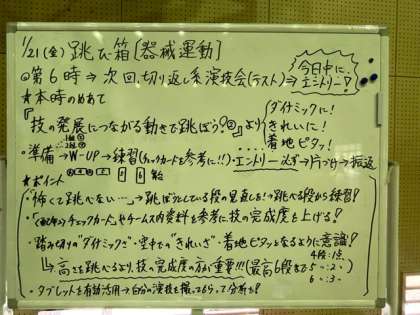 1/21(金) 跳び箱[器械運動]
◎第6時⇒次回、切り返し系演技会(テスト)⇒今日中にエントリー!
★本時のめあて
『技の発展につながる動きで跳ぼう?②』より
ダイナミックに!
きれいに!
着地ピタッ!
・準備→W-UP→練習(チェックカードを参考に!!)・エントリー→片づけ→振返
★ポイント
・「怖くて跳べない…」→跳ぼうとしている段の見直しを!→跳べる段から練習!
チェックカード、やチームス内資料を参考に、技の完成度を上げる!
・踏み切りの"ダイナミックさ"・空中での"きれいさ"・着地ピタッとなるように意識!
↳高さを跳べるより、技の完成度の方が重要!!!(最高6段まで)
4段:1点
5〃:2〃
6〃:3〃
・タブレットを有効活用→自分の演技を撮ってもらって分析を!